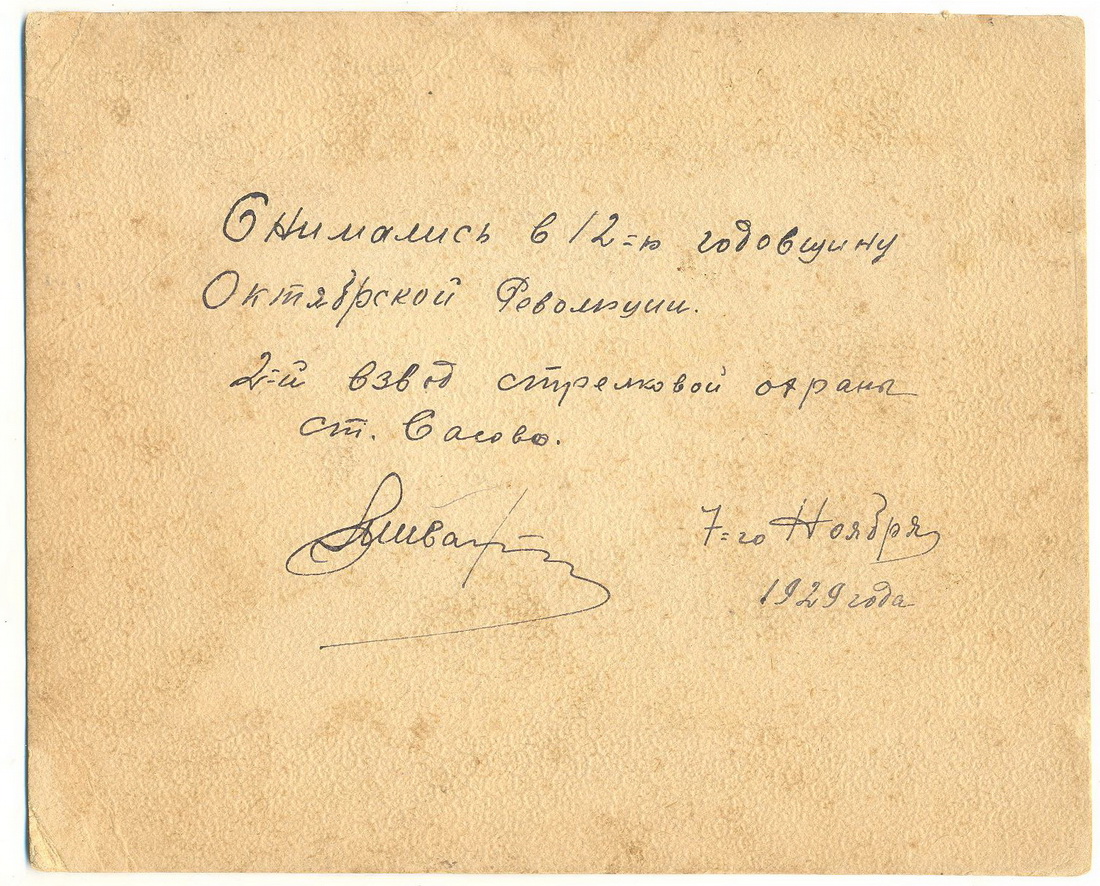 Снимались в 12=ю годовщину
Октябрской Революции.
2=й взвод стрелковой охраны
ст. Сасово.
7=го Ноября
1929 года